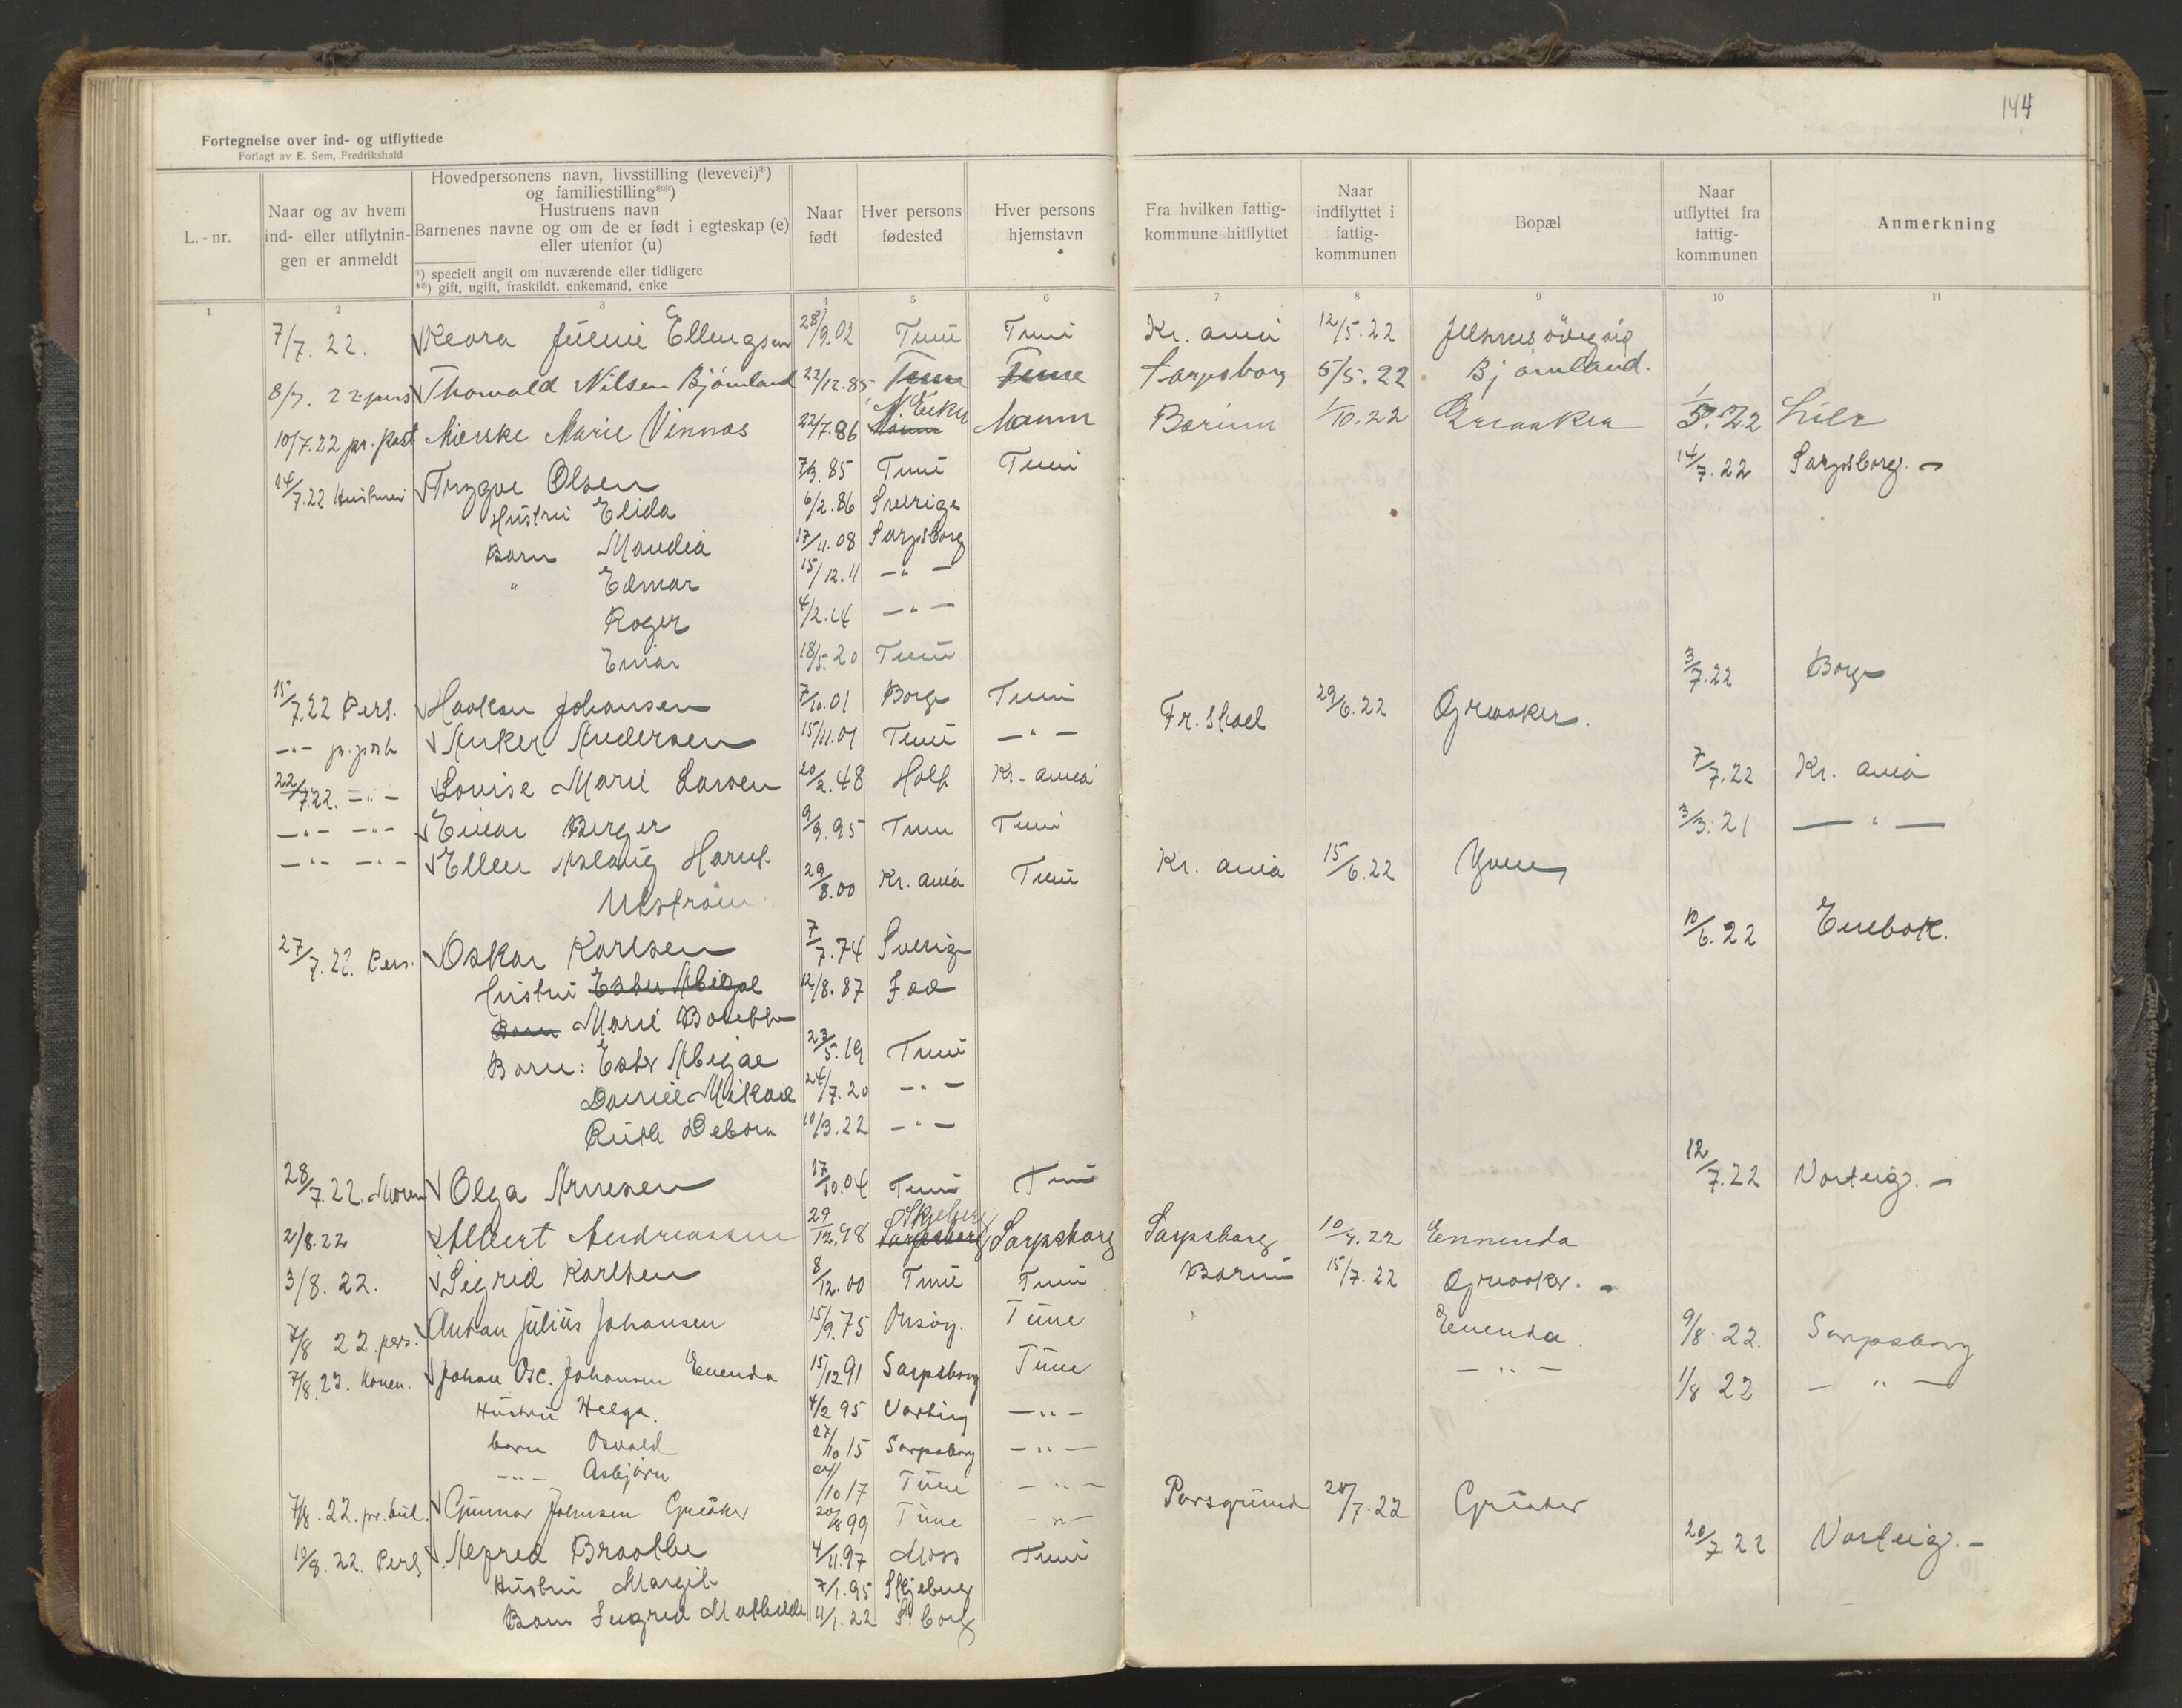 144
Fortegnelse over ind- og utflyttede
Forlagt av E. Sem, Fredrikshald
L.-nr.
Naar og av hvem ind- eller utflytnin- gen er anmeldt
Hovedpersonens navn, livsstilling (levevei)*)
og familiestilling**)
Hustruens navn
Barnenes navne og om de er født i egteskap (e)
eller utenfor (u)
*) specielt angit om nuværende eller tidligere
**) gift, ugift, fraskildt, enkemand, enke
Naar født
Hver persons fødested
Hver persons hjemstavn
Fra hvilken fattig- kommune hitflyttet
Naar indflyttet i fattig- kommunen
Bopæl
Naar utflyttet fra fattig- kommunen
Anmerkning
1 2 3 4 5 6 7 8 9 10 11
7/7. 22. Klara Ellingsen 28/9.02 Tune Tune Kr. ania 12/5.22
8/7. 22 pers Thorvald Nilsen Bjørnland 22/12.85 Tune Tune Sarpsborg 5/5.22 Bjørnland.
10/7.22 pr. post Marie Vinnas 22/7.86 N. Eiker Moum Bærum 1/10.22 Greaaker 1/5.22 Lier
14/7.22 Hustrui Trygve Olsen 7/3.85 Tune Tune 14/7.22 Sarpsborg. -
Hustrui Elida 6/2.86 Sverige
Barn Maudia 17/11.08 Sarpsborg
" Edmar 15/12.11 -"-
Roger 4/2.14 -"-
Einar 18/5.20 Tune
15/7.22 Pers. Haakon Johansen 7/10.01 Borge Tune 3/7.22 Borge
-"- pr. post Anker Andersen 15/11.01 Tune -"- Fr. stad 29/6.22 Greaaker.
22/7.22. -"- Lovise Marie Larsen 20/2.48 Holt Kr. ania 7/7.22 Kr. ania
-"- -"- Einar Berger 9/9.95 Tune Tune 3/3.21 -"-
-"- -"- Ellen Aslaug
Ulstrøm 29/8.00 Kr. ania Tune Kr. ania 15/6.22 Yven
27/7.22. Pers. Oskar Karlsen 7/7.74 Sverige 10/6.22 Enebak.
Hustrui Ester Abigal 12/8.87
Barn Marie
Barn: Ester Abigae 23/5.19 Tune
Daniel Mikael 24/7.20 -"-
Ruth Debora 10/3.22 -"-
28/7.22. Moren Olga Arnesen 17/10.04 Tune Tune 12/7.22 Varteig. -
2/8.22 Albert Andreassen 29/12.48 Skjeberg Sarpsborg Sarpsborg Sarpsborg 10/7.22 Ennenda
3/8. 22. Sigrid Karlsen 8/12.00 Tune Tune Bærum 15/7.22 Greaaker. -
7/8 22. pers. Anton Julius Johansen 15/9.75 Onsøy. Tune Enenda. 9/8.22. Sarpsborg
7/8.22. Konen. Johan Osc. Johansen Enenda 15/12 91 Sarpsborg Tune -"- 1/8 22 -"-
Hustru Helga. 4/2 95 Varteig -"-
barn Osvald 27/10 15 Sarpsborg -"-
-"- Asbjørn /10 17 Tune -"-
7/8.22. pr. bud. Gunnar Johnsen Greåker 20/8 99 Tune -"- Porsgrund 20/7.22 Greåker
10/8.22. Pers Alfred Braathe 4/11.97 Moss Tune 20/7 22 Varteig. -
Hustrui Margit 7/1.95 Skjeberg
Barn Ingrid Mathilde 11/1.22 S. borg